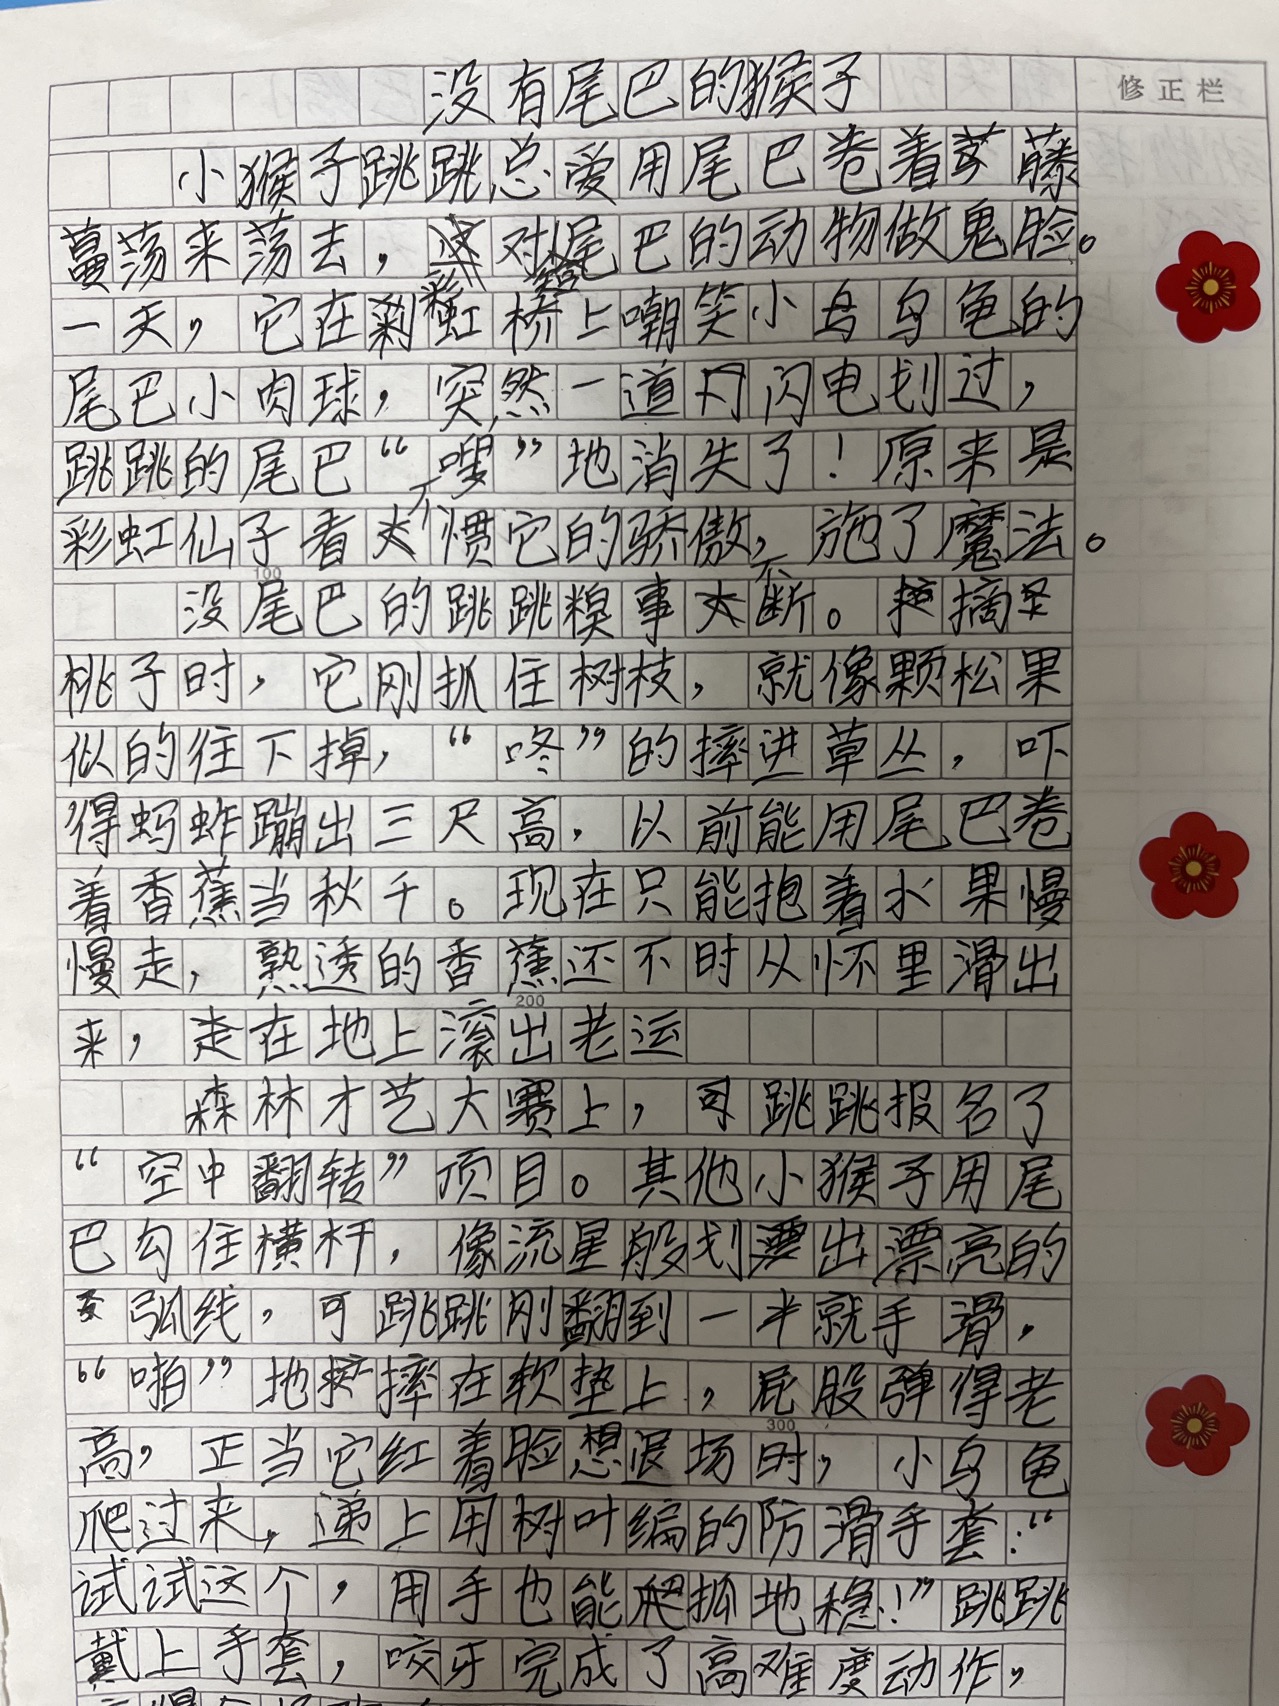 没有尾巴的猴子
修正栏
小猴子跳跳总爱用尾巴卷着藤
蔓荡来荡去，对尾巴的动物做鬼脸。
一天，它在彩虹桥上嘲笑小乌龟的
尾巴小肉球，突然一道闪电划过，
跳跳的尾巴“嗖”地消失了！原来是
彩虹仙子看不惯它的骄傲，施了魔法。
100
没尾巴的跳跳糗事不断。摘
桃子时，它刚抓住树枝，就像颗松果
似的往下掉，“咚”的摔进草丛，吓
得蚂蚱蹦出三尺高，以前能用尾巴卷
着香蕉当秋千。现在只能抱着水果慢
慢走，熟透的香蕉还不时从怀里滑出
来，走在地上滚出老远
200
森林才艺大赛上，跳跳报名了
“空中翻转”项目。其他小猴子用尾
巴勾住横杆，像流星般划出漂亮的
弧线，可跳跳刚翻到一半就手滑，
“啪”地摔在软垫上，屁股弹得老
300
高，正当它红着脸想退场时，小乌龟
爬过来，递上用树叶编的防滑手套：“
试试这个，用手也能抓地稳！”跳跳
戴上手套，咬牙完成了高难度动作，